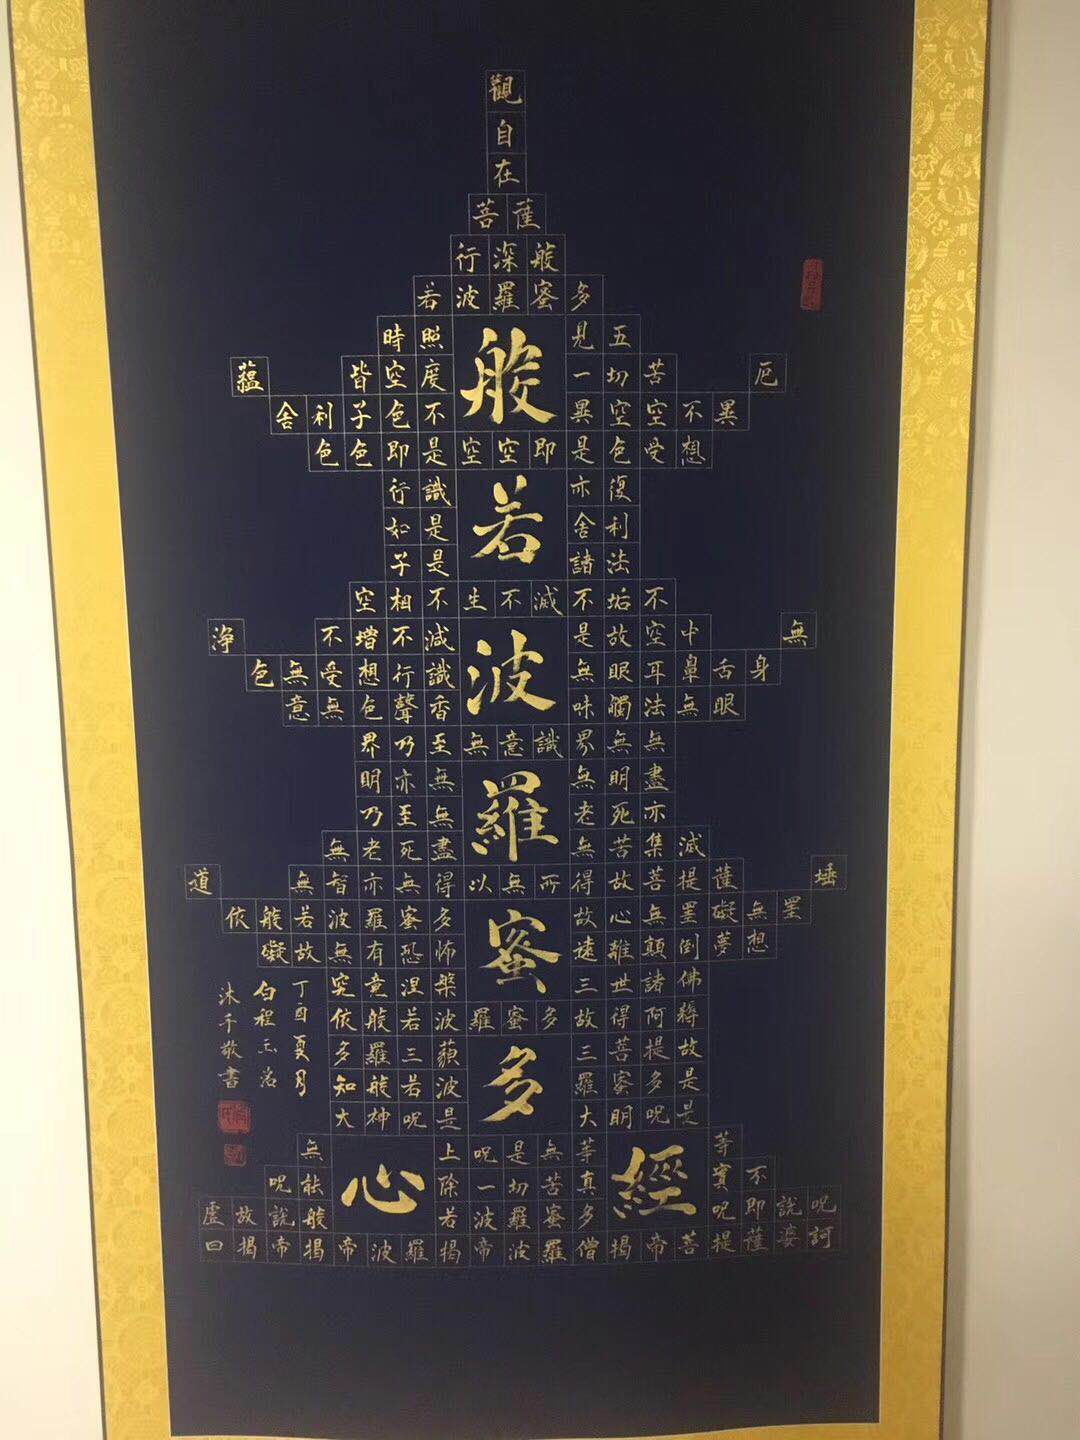 觀
自
在
菩薩
行深般
若波羅蜜多
時照見五
蘊皆空度一切苦厄
舍利子色不異空空不異
色色即是空空即是色受想
行識亦復
如是舍利
子是諸法
空相不生不滅不垢不
淨不增不減是故空中無
色無受想行識無眼耳鼻舌身
意無色聲香味觸法無眼
界乃至無意識界無無
明亦無無明盡
乃至無老死亦
無老死盡無苦集滅
道無智亦無得以無所得故菩提薩埵
依般若波羅蜜多故心無罣礙無罣
礙故無有恐怖遠離顛倒夢想
究竟涅槃三世諸佛
依般若波羅蜜多故得阿耨
多羅三藐三菩提故
知般若波羅蜜多是
大神呪是大明呪是
無上呪是無等等
呪能除一切苦真實不
虛故說般若波羅蜜多呪即說呪
曰揭帝揭帝波羅揭帝波羅僧揭帝菩提薩婆訶
般若波羅蜜多心經
丁酉夏月
沐手敬書